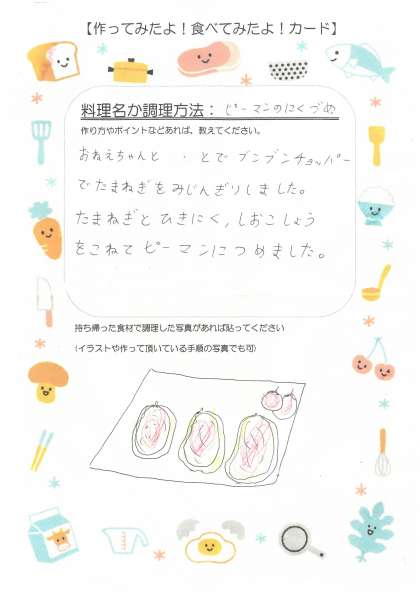 【作ってみたよ！食べてみたよ！カード】
料理名か調理方法：ピーマンのにくづめ
作り方やポイントなどあれば、教えてください。
おねえちゃんと とでブンブンチョッパー
でたまねぎをみじんぎりしました。
たまねぎとひきにく,しおこしょう
をこねてピーマンにつめました。
持ち帰った食材で調理した写真があれば貼ってください
(イラストや作って頂いている手順の写真でも可)